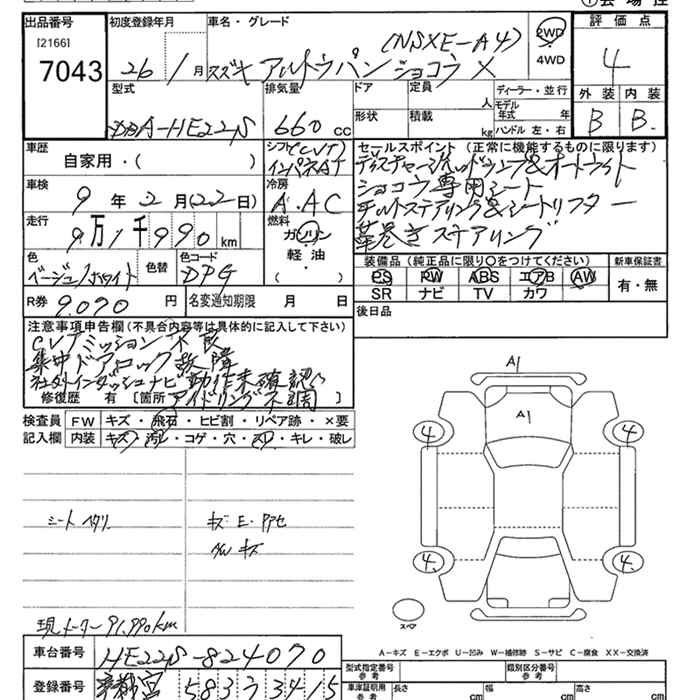 出品番号 初度登録年月 車名・グレード 評価点
[2166] (NSXE-A4) 2WD 4WD
7043 26/1月 スズキ アルトラパンショコラ X 4
型式 排気量 ドア 定員 人 ディーラー・並行 外装 内装
DBA-HE22S 660cc 形状 積載 kg モデル年式 年 ハンドル 左・右 B B
車歴 自家用・( ) シフト(CVT) インパネAT
セールスポイント(正常に機能するものに限ります)
ディスチャージヘッドランプ&オートライト
ショコラ専用シート
チルトステアリング&シートリフター
革巻きステアリング
車検 9年2月(22日) 冷房 A.AC
走行 9万1千990km 燃料 ガソリン 軽油・( )
色 ベージュ/ホワイト 色替 色コード DPG
装備品(純正品に限り○をつけてください) 新車保証書
PS PW ABS エアB AW 有・無
SR ナビ TV カワ
R券 9,070円 名変通知期限 月 日
後日品
注意事項申告欄(不具合内容等は具体的に記入して下さい)
CVTミッション不良
集中ドアロック故障
社外インダッシュナビ動作未確認
修復歴 有 [箇所 アイドリング不調 ]
検査員 FW キズ・飛石・ヒビ割・リペア跡・×要
記入欄 内装 キズ・汚レ・コゲ・穴・スレ・キレ・破レ
シートヘタリ キズ E.アアセ
AW キズ
現メーター 91,990km
A1
A1
4 4
4 4.
スペア
A-キズ E-エクボ U-凹み W-補修跡 S-サビ C-腐食 XX-交換済
車台番号 HE22S-824070
登録番号 宇都宮 583 3415
型式指定番号 参考 類別区分番号 参考
車庫証明用 参考 長さ cm 幅 cm 高さ cm